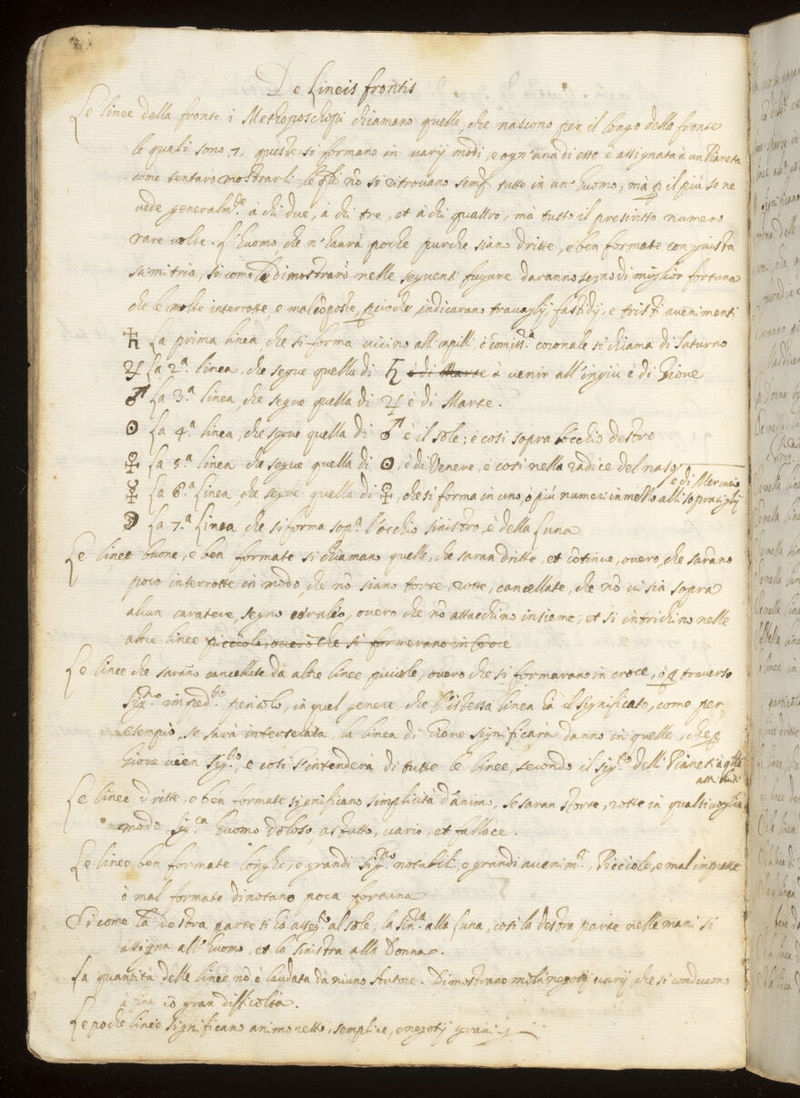 De Lineis frontis
Le linee della fronte i Methoposchopi chiamano quelle, che nascono per il longo della fronte
le quali sono 7. queste si formano in varij modi, e ogn'una di esse è assignata à un Pianeta
come tentarò mostrarli le qli nō si ritrovano semp. tutte in un' huomo, mà p il più se ne
vede generalmte. à chi due, à chi tre, et à chi quattro, mà tutto il prescritto numero
rare volte. L'huomo che n'haurà poche purche siano dritte, e ben formate con giusta
samitria, si come dimostrarò nelle seguenti figure daranno segno di miglior fortuna
che le molte interrotte, e malcōposte, pcioche indicarano travaglij fastidij, e tristi avenimenti
♄ La prima linea che si forma vicino all capilli, è comiss. coronale si chiama di Saturno
♃ La 2ª. linea, che segue quella di ♄ è di Marte à venir all'ingiù è di Giove
♂ La 3ª. linea, che segue quella di ♃ è di Marte.
☉ La 4ª. linea, che segue quella di ♂ è il sole; è così sopra l'occhio destro
♀ La 5ª. linea che segue quella di ☉, è di Venere, è così nella radice del naso
☿ La 6ª. Linea, che segue quella di ♀, che si forma in uno, ò più numeri in mezzo alli sopraciglij è di Mercurio
☽ La 7ª. Linea che si forma sopª. l'occhio sinistro, è della Luna
Le linee buone, e ben formate si chiamano quelle, che saran dritte, et cōtinue, overo, che sarāno
poco interrotte, in modo, che nō siano torte, rotte, cancellate, che nō vi sia sopra
alcun caratere, segno, overo che nō attacchino insieme, et si intrichino nelle
altre linee piccïole, overo che si formerano in Croce
Le linee che sarāno cancellate da altre linee picciole, overo che si formarano in croce, ò p traverso
impedto. pericolo, in quel genere, che l'istessa linea hà il significato, come per
esempio, se sarà interselata, la linea di Giove significarà danno in quelle, che
Giove vien sigto., e così s'intenderà di tutte le linee, secondo il sigto. dell' Pianeta à qlla attribuiti
Le linee dritte, e ben formate significano simplicità d'animo, se saran storte, rotte in qualsivoglia
modo, sigca. huomo doloso, astutto, vario, et fallace.
Le linee ben formate longhe, e grandi signo. notabili, e grandi avenimti, Picciole, e mal impresse
ò mal formate dinotano poca fortuna
Si come la destra parte si è assegto al sole, la sinra. alla Luna, così la destra parte nelle mani si
assigna all'huomo, et la sinistra alla Donna.
La quantità delle linee nō è laudata da niuno Autore. Dimostrano molti negotij varij che si conducono
à fine cō gran difficoltà.
Le poche linee significano animo retto, semplice, e negotij gravi